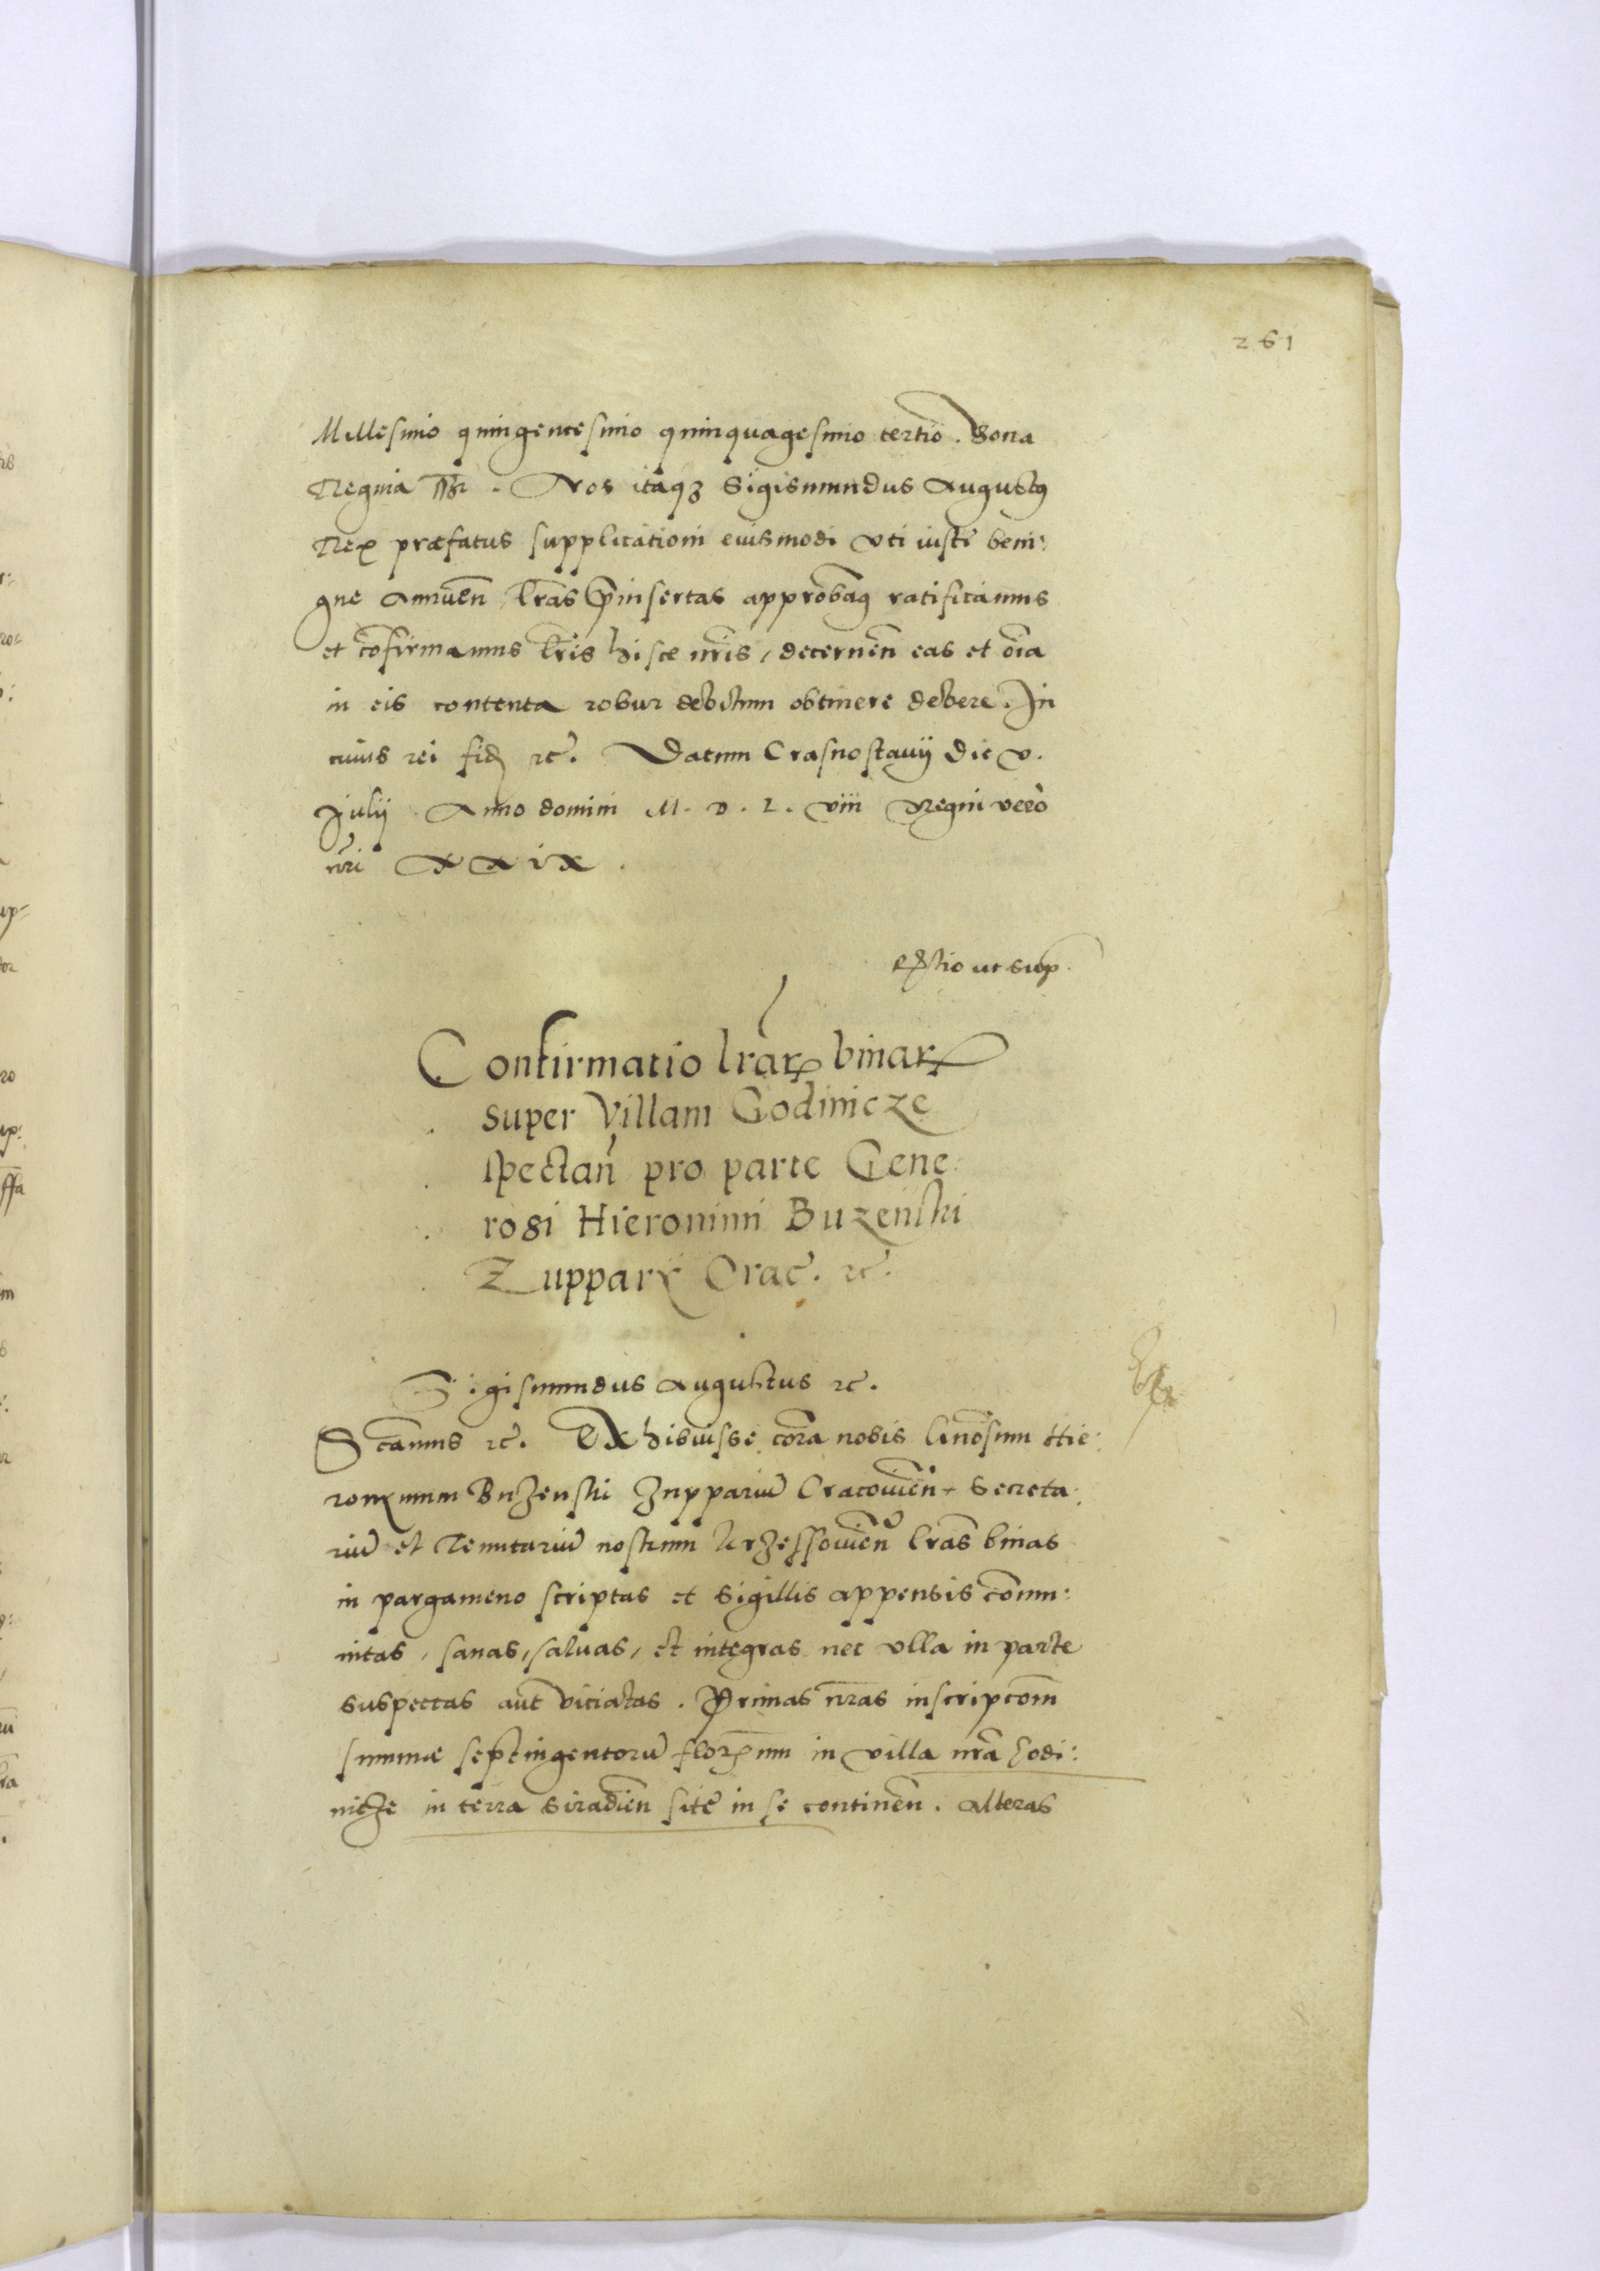 261
Millesimo quingentesimo quinquagesimo tertio. Bona
Regina ss̃t. Nos itaqꝫ Sigismundus Augustꝰ
Rex præfatus supplicationi eiusmodi vti iuste beni:
gne annueñ, lr̃as p̃insertas approbãꝰ ratificamus
et cõfirmamus lr̃is hisce nr̃is, decerneñ eas et oĩa
in eis contenta robur debitum obtinere debere. In
cuius rei fidẽ ꝛc̃. Datum Crasnostavij die v.
Julij Anno domini M. D. L. viii Regni vero
nr̃i XXix.
ut sup.
Confirmatio lr̃aꝝ binaꝝ
super Villam Godinicze
spectañ pro parte Gene:
rosi Hieronimi Buzenski
Zupparij Crac̃. ꝛc̃.
Sigismundus Augustus ꝛc̃.
S cãmus ꝛc̃. Exhibuisse corã nobis Gñosum Hie:
ronymum Buzenski Zuppariũ Cracovieñ Secreta:
riũ et Tenutariũ nostrum Brzessovieñ lr̃as binas
in pargameno scriptas et sigillis appensis cõmu:
nitas, sanas, salvas, et integras nec vlla in parte
suspectas aut vitiatas. Primas nr̃as inscripcoñm
summæ septingentorũ floꝝenum in villa nr̃a Godi:
nicze in terra Siradieñ site in se contineñ. Alteras